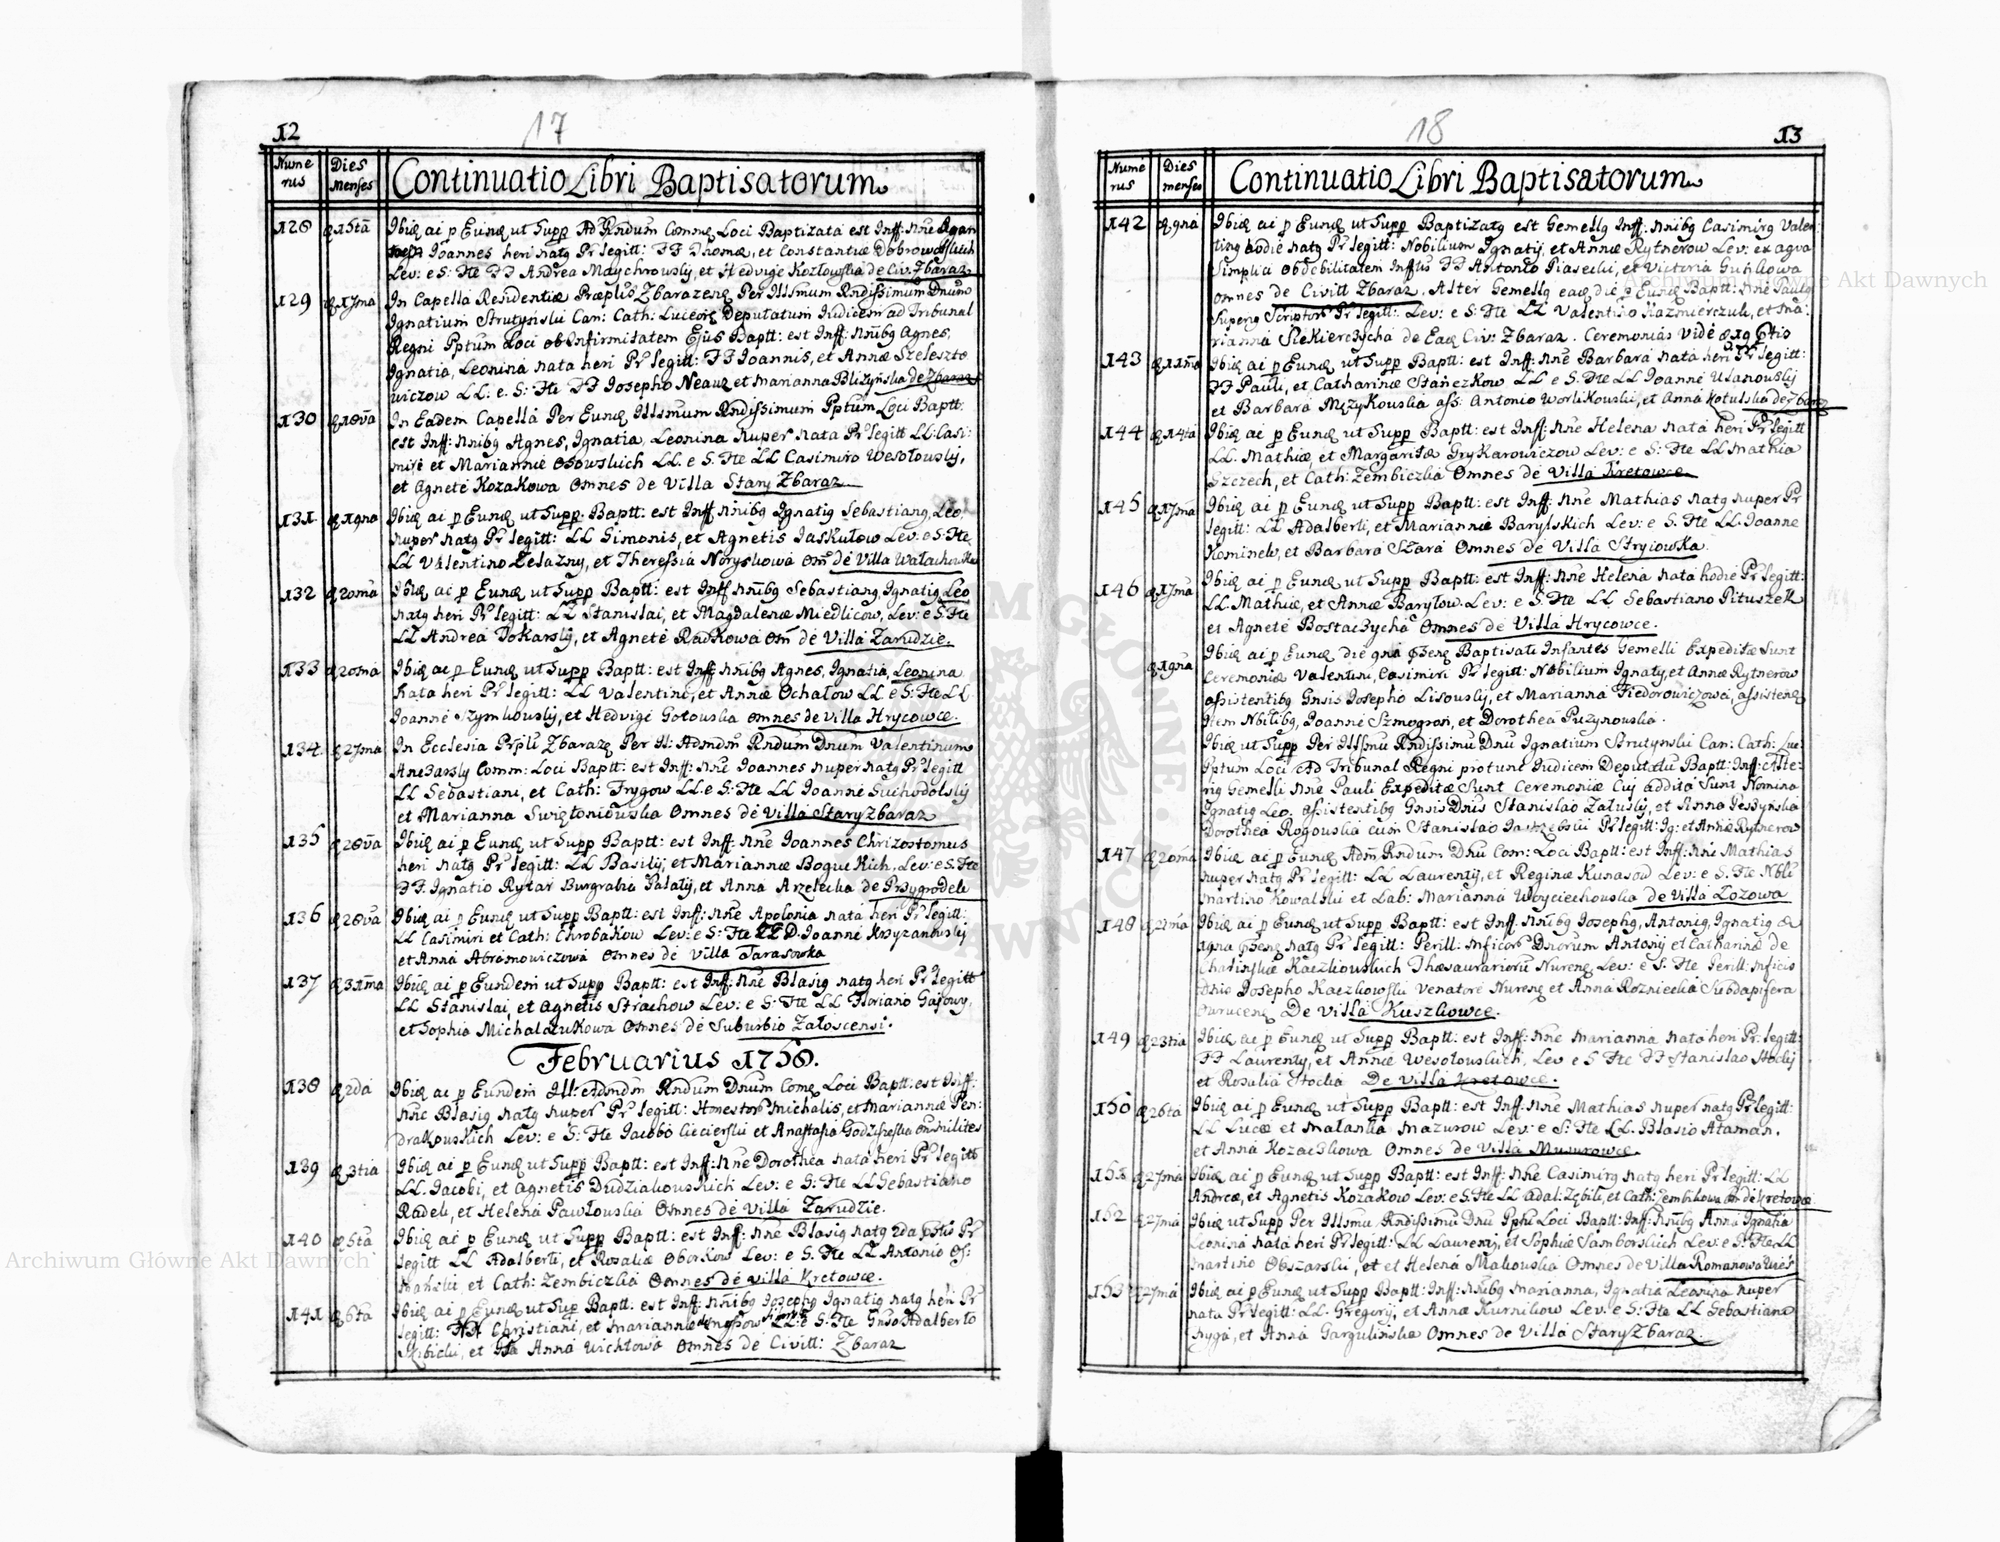 12
17
Numerus
Dies Menses
Continuatio Libri Baptisatorum
128
15ta
Ibiq ac p Eunq ut Supp Ad Rndum Commq Loci Baptizata est Inff: nne
Joannes heri natq Pr legitt: FF Thomæ, et Constantiæ
Lev: e S: Fte FF Andrea Maychrowsky, et Hedvige Kozłowska de Civ. Zbaraz
129
17ma
In Capella Residentiæ Præplis Zbarazenq Per Illsmum Rndissimum Dnum
Ignatium Strutynski Can: Cath: Luceoq Deputatum Iudicem ad Tribunal
Regni Pptum Loci ob Infirmitatem Ejus Baptt: est Inff: nnibq Agnes,
Ignatia, Leonina nata heri Pr legitt: FF Joannis, et Annæ Szeleszto
wiczow LL: e S: Fte FF Josepho Neauz et Marianna Bliżyńska de Zbaraz
130
18va
In Eadem Capella Per Eunq Illsmum Rndissimum Pptum Loci Baptt:
est Inff: nnibq Agnes, Ignatia, Leonina nuper nata Pr legitt LL: Casi:
miri et Mariannæ Osowskich LL. e S: Fte LL Casimiro Wesołowsky,
et Agnete Kozakowa Omnes de Villa Stary Zbaraz
131
19na
Ibiq ac p Eunq ut Supp. Baptt: est Inff nnibq Ignatiq Sebastianq, Leo,
nuper natq Pr legitt: LL Simonis, et Agnetis Jaskułow Lev: e S: Fte
LL Valentino Zelazny, et Theressia Noryskowa Om de Villa
132
20ma
Ibiq ac p Eunq ut Supp Baptt: est Inff nnibq Sebastianq, Ignatiq Leo
natq heri Pr legitt: LL Stanislai, et Magdalenæ Miedlicow, Lev: e S: Fte
LL Andrea Tokarsky, et Agnete Radkowa Om de Villa Zarudzie.
133
20ma
Ibiq ac p Eunq ut Supp Baptt: est Inff nnibq Agnes, Ignatia, Leonina
nata heri Pr legitt: LL Valentini, et Annæ Ochałow LL e S: Fte LL
Joanne Szymkowsky, et Hedvige Gotowska Omnes de Villa Hrycowce.
134
27ma
In Ecclesia Prpli Zbarazq Per Il: Admdm Rndum Dnum Valentinum
Comm: Loci Baptt: est Inff: nne Joannes nuper natq Pr legitt
LL Sebastiani, et Cath: Frygow LL. e S: Fte LL Joanne Suchodolsky
et Marianna Omnes de Villa Stary Zbaraz
135
28va
Ibiq ac p Eunq ut Supp Baptt: est Inff. nne Joannes Chrizostomus
heri natq Pr legitt: LL Basily, et Mariannæ Boguckich, Lev: e S: Fte
FF. Ignatio Rytar Burgrabia Palaty, et Anna Arzelecka de Przygrodek
136
28va
Ibiq ac p Eunq ut Supp Baptt: est Inff: nne Apolonia nata heri Pr legitt:
LL Casimiri et Cath: Chrobakow Lev: e S: Fte LL D. Joanne Krzyzanowsky
et Anna Abramowiczowa Omnes de Villa Tarasowka
137
31ma
Ibiq ac p Eundem ut Supp Baptt: est Inff: nne Blasiq natq heri Pr legitt
LL Stanislai, et Agnetis Strachow Lev: e S: Fte LL Floriano Gajowy,
et Sophia Michalczukowa Omnes de Suburbio Załoscensi.
Februarius 1758.
138
2da
Ibiq ac p Eundem Ill: Admdm Rndum Dnum Comq Loci Baptt: est Inff:
nne Blasiq natq nuper Pr legitt: Honestor Michalis, et Mariannæ Pen:
drakowskich Lev: e S: Fte Jacobo Ciecierski et Anastasia
139
3tia
Ibiq ac p Eunq ut Supp Baptt: est Inff: nne Dorothea nata heri Pr legitt
LL. Jacobi, et Agnetis Dudziakowskich Lev: e S: Fte LL Sebastiano
Radek, et Helena Pawłowska Omnes de Villa Zarudzie.
140
5ta
Ibiq ac p Eunq ut Supp Baptt: est Inff: nne Blasiq natq 2da Pr
legitt LL Adalberti, et Rosaliæ Oborkow Lev: e S: Fte LL Antonio
et Cath: Zembiczka Omnes de Villa Kretowce.
141
6ta
Ibiq ac p Eunq ut Supp Baptt: est Inff: nnibq Josephq Ignatiq natq heri Pr
legitt: Christiani, et Mariannæ LL: e S: Fte Adalberto
Skibicki, et Anna Wichtowa Omnes de Civitt: Zbaraz
18
13
Numerus
Dies menses
Continuatio Libri Baptisatorum
142
9na
Ibiq ac p Eunq ut Supp Baptizatq est Gemellq Inff: nnibq Casimirq Valen:
tinq hodie natq Pr legitt: Nobilium Ignaty, et Annæ Rytnerow Lev: ex aqva
Simplici ob debilitatem FF Antonio Piasecki, et Victoria
omnes de Civitt Zbaraz. Alter Gemellq eaq die p Eunq Baptt: nne Paulq
Superq Scriptor Pr legitt: Lev: e S: Fte LL Valentino Kazmierczuk, et Ma:
rianna Siekierzycha de Eaq Civ: Zbaraz. Ceremonias Vide
143
11ma
Ibiq ac p Eunq ut Supp Baptt: est Inff: nne Barbara nata heri Pr legitt:
FF Pauli, et Catharinæ Stanczkow LL e S: Fte LL Joanne Ułanowsky
et Barbara Mężykowska ass: Antonio Worlikowski, et Anna Kotulska de Zbaraz
144
14ta
Ibiq ac p Eunq ut Supp Baptt: est Inff: nne Helena nata heri Pr legitt
LL. Mathiæ, et Margaritæ Grykarowiczow Lev: e S: Fte LL Mathia
Szczech, et Cath: Zembiczka Omnes de Villa Kretowce
145
17ma
Ibiq ac p Eunq ut Supp Baptt: est Inff: nne Mathias natq nuper Pr
legitt: LL Adalberti, et Mariannæ Barylskich Lev: e S: Fte LL Joanne
Kominek, et Barbara Szara Omnes de Villa Stryiowka.
146
17ma
Ibiq ac p Eunq ut Supp Baptt: est Inff: nne Helena nata hodie Pr legitt:
LL. Mathiæ, et Annæ Baryłow. Lev: e S: Fte LL Sebastiano Pituszek
et Agnete Bostaczycha Omnes de Villa Hrycowce.
19na
Ibiq ac p Eunq die 9na Baptisati Infantes Gemelli Expeditæ Sunt
Ceremoniæ Valentini, Casimiri Pr legitt: Nobilium Ignaty, et Annæ Rytnerow
assistentibq Gnsis Josepho Lisowsky, et Marianna Fiedorowiczowa, assistenq
item Nbilibq, Joanne Szmogron, et Dorothea Puzynowska.
Ibiq ut Supp Per Illsmu Rndissimu Dnu Ignatium Strutynski Can: Cath: Luc
Pptum Loci Ad Tribunal Regni protunc Iudicem Deputatu Baptt: Inff: Alte:
riq Gemelli nne Pauli Expeditæ Sunt Ceremoniæ Cuj addita Sunt Nomina
Ignatiq Leo, assistentibq Gnsis Dnis Stanislao Załusky, et Anna
Dorothea Rogowska cum Stanislao Pr legitt: Ig: et Annæ Rytnerow
147
20ma
Ibiq ac p Eunq Adm Rndum Dnu Com: Loci Baptt: est Inff: nne Mathias
nuper natq Pr legitt: LL Laurenty, et Reginæ Kunasow Lev: e S: Fte Nbli
Martino Kowalski et Lab: Marianna Woyciechowska de Villa Łozowa
148
21ma
Ibiq ac p Eunq ut Supp Baptt: est Inff. nnibq Josephq, Antoniq, Ignatiq
natq Pr legitt: Perill: Mficor Dnorum Antonij et Catharina de
Kaczkowskich Thesaurarioru Nurenq Lev: e S: Fte Perill: Mficis
Dno Josepho Kaczkowski Venatore Nurenq et Anna Rozniecka Subdapifera
De Villa Kuszkowce.
149
23tia
Ibiq ac p Eunq ut Supp Baptt: est Inff: nne Marianna nata heri Pr: legitt:
FF Laurenty, et Annæ Wesołowskich, Lev e S Fte FF Stanislao Stocky
et Rosalia Stocka De Villa Kretowce.
150
26ta
Ibiq ac p Eunq ut Supp Baptt: est Inff: nne Mathias nuper natq Pr legitt:
LL Lucæ et Malanka Mazurow Lev: e S: Fte LL. Blasio Ataman.
et Anna Kozaczkowa Omnes de Villa
151
27ma
Ibiq ac p Eunq ut Supp Baptt: est Inff: nne Casimirq natq heri Pr legitt: LL
Andreæ, et Agnetis Kozakow Lev: e S: Fte LL Adal: et Cath: de Kretowce
152
27ma
Ibiq ut Supp Per Illsmu Rndissimu Dnu Loci Baptt: Inff: nnibq Anna Ignatia
Leonina nata heri Pr legitt: LL Laurenty, et Sophiæ Samborskich Lev: e S: Fte LL
Martino Obszarski, et et Helena Malikowska Omnes de Villa
153
27ma
Ibiq ac p Eunq ut Supp Baptt: Inff: nnibq Marianna, Ignatia Leonina nuper
nata Pr legitt: LL: Gregory, et Annæ Kurnikow Lev: e S: Fte LL Sebastiano
et Anna Gargulinska Omnes de Villa Stary Zbaraz
Archiwum Główne Akt Dawnych
Archiwum Główne Akt Dawnych